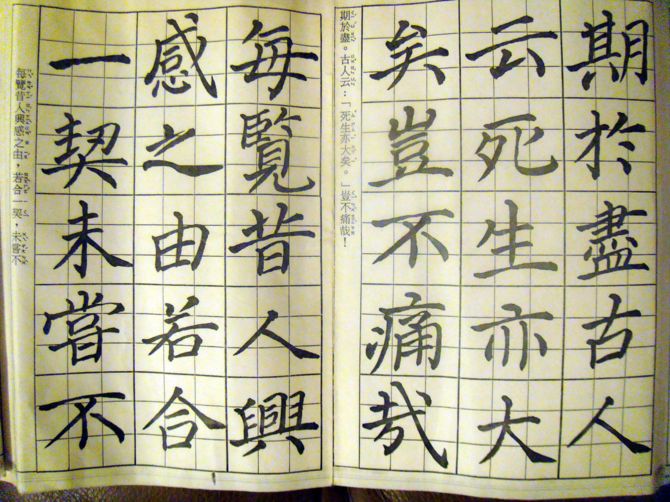 期於盡古人
云死生亦大
矣豈不痛哉
期於盡。古人云：「死生亦大矣。」豈不痛哉！
每覽昔人興
感之由若合
一契未嘗不
每覽昔人興感之由，若合一契，未嘗不